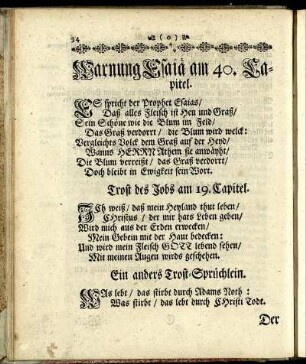 34 (0)
Warnung Esaiä am 40. Ca-
pitel.
ES spricht der Prophet Esaias/
Daß alles Fleisch ist Heu und Graß/
Sein Schöne wie die Blum im Feld/
Das Graß verdorrt/ die Blum wird welck:
Vergleichts Volck dem Graß auf der Heyd/
Wanns HERRN Athem sie anwähyt/
Die Blum verreißt/ das Graß verdorrt/
Doch bleibt in Ewigkeit sein Wort.
Trost des Jobs am 19. Capitel.
ICh weiß/ daß mein Heyland thut leben/
CHristus/ der mir hats Leben geben/
Wird mich aus der Erden erwecken/
Mein Gebein mit der Haut bedecken:
Und wird mein Fleisch GOTT lebend sehen/
Mit meinen Augen wirds geschehen.
Ein anders Trost-Sprüchlein.
WAs lebt/ das stirbt durch Adams Noth:
Was stirbt/ das lebt durch CHristi Todt.
Der